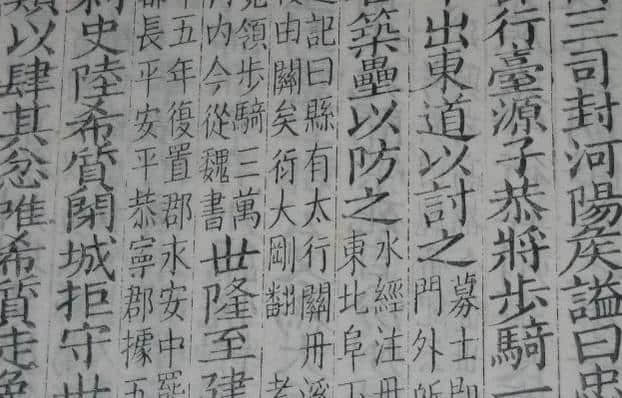 三司封河陽矦謚曰忠
行臺源子恭將步騎一
出東道以討之募士即
門外
築壘以防之水經注丹
東北阜下
記曰縣有太行關丹溪
由關矣衍大剛翻考
領步騎三萬
内今從魏書世隆至建
五年復置郡永安中罷
長平安平恭寧郡據五
史陸希質閉城拒守世
以肆其忿唯希質走免